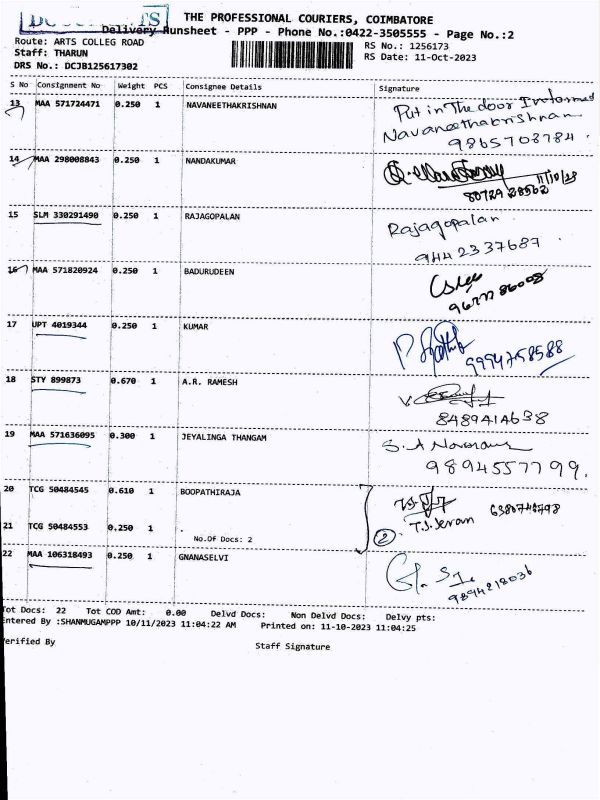 DOCUMENTS
THE PROFESSIONAL COURIERS, COIMBATORE
Delivery Runsheet - PPP - Phone No.:0422-3505555 - Page No.:2
Route: ARTS COLLEG ROAD
Staff: THARUN
DRS No.: DCJB125617302
RS No.: 1256173
RS Date: 11-Oct-2023
S No Consignment No Weight PCS Consignee Details Signature
13 MAA 571724471 0.250 1 NAVANEETHAKRISHNAN
Put in The door Informed
Navaneethakrishnan
9865703784.
14 MAA 298008843 0.250 1 NANDAKUMAR
11/10/23
15 SLM 330291490 0.250 1 RAJAGOPALAN
Rajagopalan
9442337687.
16 MAA 571820924 0.250 1 BADURUDEEN
17 UPT 4019344 0.250 1 KUMAR
9994758588
18 STY 899873 0.670 1 A.R. RAMESH
8489414638
19 MAA 571636095 0.300 1 JEYALINGA THANGAM
9894557799.
20 TCG 50484545 0.610 1 BOOPATHIRAJA
21 TCG 50484553 0.250 1 .
No.Of Docs: 2
2
22 MAA 106318493 0.250 1 GNANASELVI
9894218036
Tot Docs: 22 Tot COD Amt: 0.00 Delvd Docs: Non Delvd Docs: Delvy pts:
Entered By :SHANMUGAMPPP 10/11/2023 11:04:22 AM Printed on: 11-10-2023 11:04:25
Verified By Staff Signature